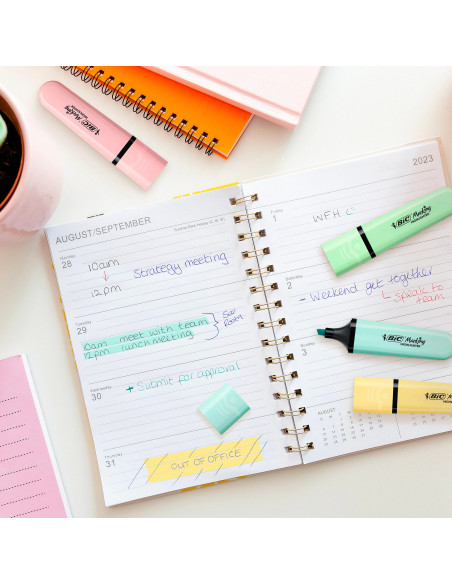 BIC Marking
HIGHLIGHTER
AUGUST/SEPTEMBER
Monday
28
10am
Strategy meeting
12pm
Tuesday
29
10am meet with team
12pm lunch meeting
Wednesday
30
+ Submit for approval
Thursday
31
OUT OF OFFICE
2023
Friday
WFH
BIC Marking
HIGHLIGHTER
Saturday
2
- Weekend get together
speak to
team
Sunday
3
BIC Marking
HIGHLIGHTER
BIC Marking
HIGHLIGHTER
AUGUST